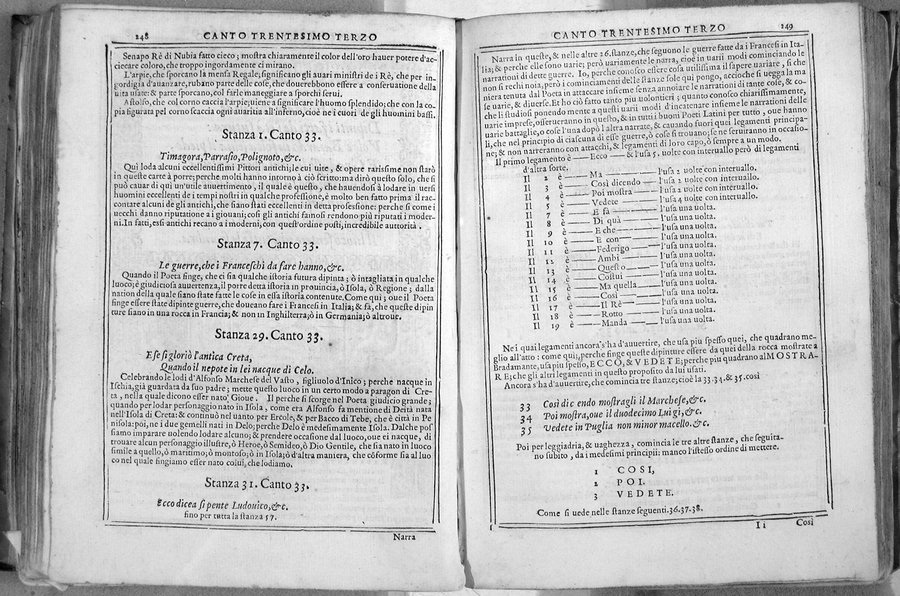 248 CANTO TRENTESIMO TERZO
Senapo Rè di Nubia fatto cieco; mostra chiaramente il color dell'oro hauer potere d'ac-
ciecare coloro, che troppo ingordamente ci mirano.
L'arpie, che sporcano la mensa Regale, significano gli auari ministri de i Rè, che per in-
gordigia d'auanzare, rubano parte delle cose, che dourebbono essere a conseruatione della
vita usate: & parte sporcano, col farle maneggiare a sporchi serui.
Astolfo, che col corno caccia l'arpie, tiene a significare l'huomo splendido; che con la co-
pia figurata pel corno scaccia ogni auaritia all'inferno, cioè ne i cuori de gli huomini bassi.
Stanza 1. Canto 33.
Timagora, Parrasio, Polignoto, &c.
Qui loda alcuni eccellentissimi Pittori antichi; le cui uite, & opere rarissime non starò
in queste carte à porre; perche molti hanno intorno à ciò scritto: ma dirò questo solo, che si
può cauar di qui un'utile auuertimento, il quale è questo, che hauendosi à lodare in uersi
huomini eccellenti de i tempi nostri in qualche professione, è molto ben fatto prima il rac-
contare alcuni de gli antichi, che siano stati eccellenti in detta professione: perche si come i
uecchi danno riputatione a i giouani; così gli antichi fanosi rendono più riputati i moder-
ni. In fatti, essi antichi recano a i moderni, con quest'ordine posti, incredibile auttorità.
Stanza 7. Canto 33.
Le guerre, che i Franceschi da fare hanno, &c.
Quando il Poeta finge, che ci sia qualche istoria futura dipinta; ò intagliata in qualche
luoco; è giudiciosa auuertenza, il porre detta istoria in prouincia, ò Isola, ò Regione; dalla
nation della quale siano state fatte le cose in essa istoria contenute. Come qui; oue il Poeta
finge essere state dipinte guerre, che doueano fare i Francesi in Italia; & fà, che queste dipin
ture siano in una rocca in Francia; & non in Inghilterra; ò in Germania; ò altroue.
Stanza 29. Canto 33.
E se si gloriò l'antica Creta,
Quando il nepote in lei nacque di Celo.
Celebrando le lodi d'Alfonso Marchese del Vasto, figliuolo d'Inico; perche nacque in
Ischia, già guardata da suo padre; mette questo luoco in un certo modo a paragon di Cre-
ta, nella quale dicono esser nato Gioue. Il perche si scorge nel Poeta giudicio grande;
quando per lodar personaggio nato in Isola, come era Alfonso fa mentione di Deità nata
nell'Isola di Creta: & continuò nel uanto per Ercole, & per Bacco di Tebe, che è città in Pe
nisola: poi, ne i due gemelli nati in Delo; perche Delo è medesimamente Isola. Dalche pos
siamo imparare uolendo lodare alcuno; & prendere occasione dal luoco, oue ei nacque, di
trouare alcun personaggio illustre, ò Heroe, ò Semideo, ò Dio Gentile, che sia nato in luoco
simile a quello, ò maritimo; ò montoso; ò in Isola; ò d'altra maniera, che cõforme sia al luo
co nel quale fingiamo esser nato colui, che lodiamo.
Stanza 31. Canto 33.
Ecco dicea si pente Ludouico, &c.
fino per tutta la stanza 57.
Narra
CANTO TRENTESIMO TERZO 249
Narra in queste, & nelle altre 26. stanze, che seguono le guerre fatte da i Francesi in Ita-
lia; & perche elle sono uarie; però uariamente le narra, cioè in uarii modi cominciando le
narrationi di dette guerre. Io, perche conosco essere cosa utilissima il sapere uariare, si che
non si rechi noia, però i cominciamenti delle stanze sole qui pongo, accioche si uegga la ma
niera tenuta dal Poeta in attaccar insieme senza annoiare le narrationi di tante cose, & co-
se uarie, & diuerse. Et ho ciò fatto tanto piu uolontieri; quanto conosco chiarissimamente,
che li studiosi ponendo mente a questi uarii modi d'incatenare insieme le narrationi delle
uarie imprese, osserueranno in questo, & in tutti i buoni Poeti Latini per tutto, oue hanno
uarie battaglie, o cose l'una dopò l'altra narrate, & cauando fuori quei legamenti principa-
li, che nel principio di ciascuna di esse guerre, ò cose si trouano; se ne seruiranno in occasio-
ne; & non narreranno con attacchi, & legamenti di loro capo, ò sempre a un modo.
Il primo legamento è — Ecco — & l'usa 5. uolte con interuallo però di legamenti
d'altra sorte.
Il 2 è — Ma — l'usa 2 uolte con interuallo.
Il 3 è — Così dicendo — l'usa 2 uolte con interuallo.
Il 4 è — Poi mostra — l'usa 2 uolte con interuallo.
Il 5 è — Vedete — l'usa 4 uolte con interuallo.
Il 7 è — E fà — l'usa una uolta.
Il 8 è — Di quà — l'usa una uolta.
Il 9 è — E che — l'usa una uolta.
Il 10 è — E con — l'usa una uolta.
Il 11 è — Federigo — l'usa una uolta.
Il 12 è — Ambi — l'usa una uolta.
Il 13 è — Questo — l'usa una uolta.
Il 14 è — Costui — l'usa una uolta.
Il 15 è — Ma quella — l'usa una uolta.
Il 16 è — Così — l'usa una uolta.
Il 17 è — Il Rè — l'usa una uolta.
Il 18 è — Rotto — l'usa una uolta.
Il 19 è — Manda — l'usa una uolta.
Ne i quai legamenti ancora s'ha d'auuertire, che usa piu spesso quei, che quadrano me-
glio all'atto: come qui; perche finge queste dipinture essere da quei della rocca mostrate a
Bradamante, usa piu spesso, ECCO, & VEDETE; perche piu quadrano al MOSTRA-
RE; che gli altri legamenti in questo proposito da lui usati.
Ancora s'ha d'auuertire, che comincia tre stanze; cioè la 33. 34. & 35. così
33 Così dicendo mostragli il Marchese, &c.
34 Poi mostra, oue il duodecimo Luigi, &c.
35 Vedete in Puglia non minor macello. &c.
Poi per leggiadria, & uaghezza, comincia le tre altre stanze, che seguita-
no subito, da i medesimi principii: manco l'istesso ordine di mettere.
1 COSI,
2 POI.
3 VEDETE.
Come si uede nelle stanze seguenti. 36. 37. 38.
Ii Così